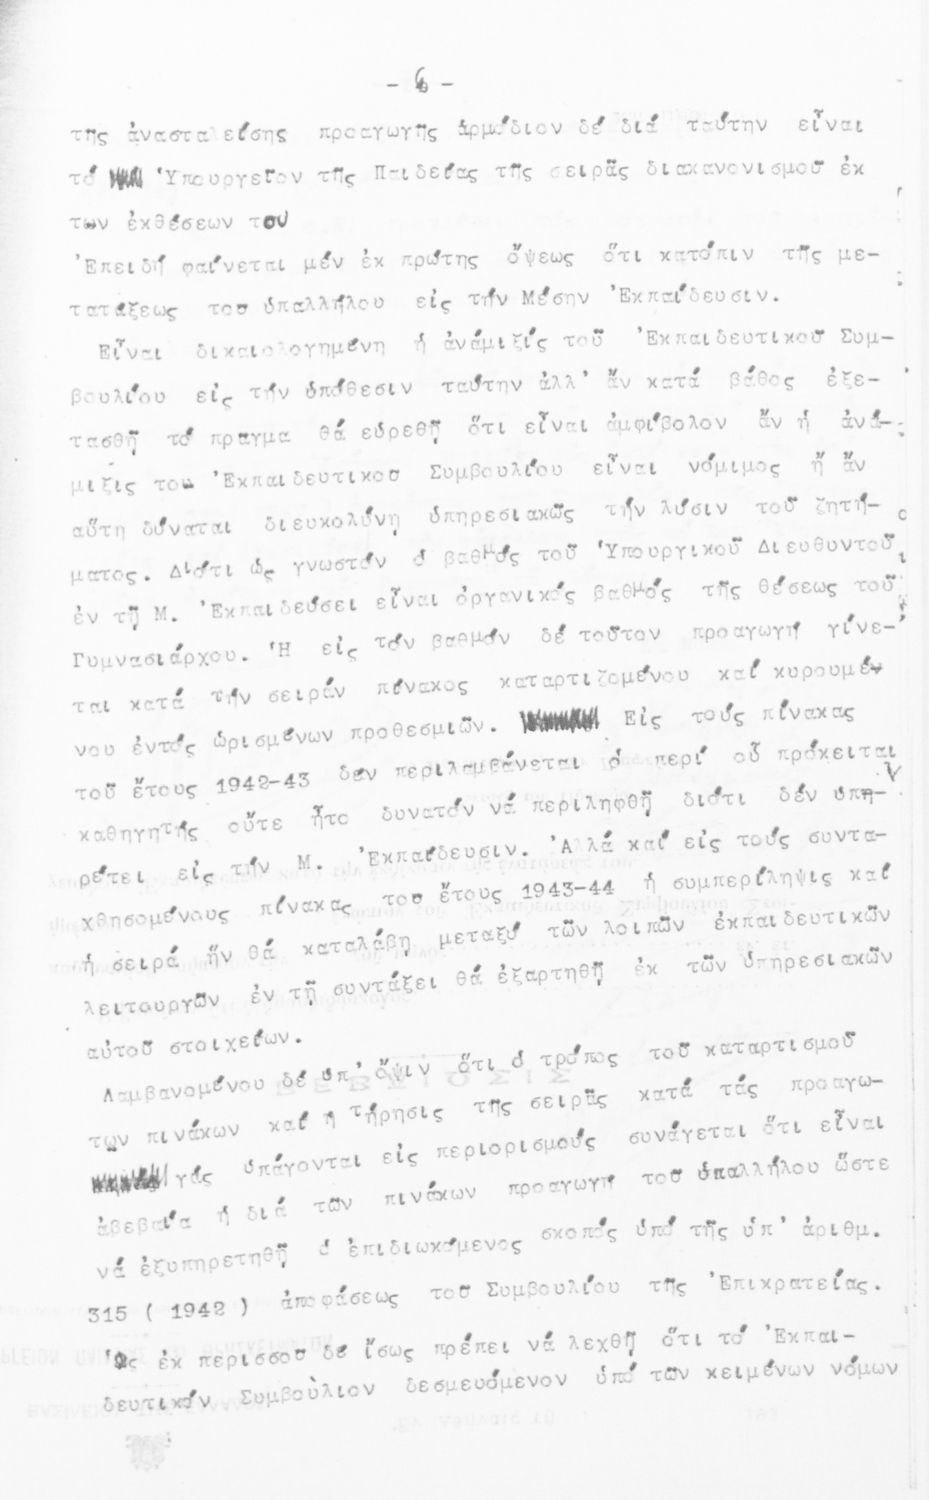 - 6 -
της ἀνασταλείσης προαγωγῆς ἁρμόδιον δέ διά ταύτην εἶναι
τό Ὑπουργεῖον τῆς Παιδείας τῆς σειρᾶς διακανονισμοῦ ἐκ
των ἐκθέσεων του
Ἐπειδή φαίνεται μέν ἐκ πρώτης ὄψεως ὅτι κατόπιν τῆς με-
τατάξεως του ὑπαλλήλου εἰς τήν Μέσην Ἐκπαίδευσιν.
Εἶναι δικαιολογημένη ἡ ἀνάμιξίς τοῦ Ἐκπαιδευτικοῦ Συμ-
βουλίου εἰς τήν ὑπόθεσιν ταύτην ἀλλ' ἄν κατά βάθος ἐξε-
τασθῇ τό πραγμα θά εὑρεθῇ ὅτι εἶναι ἀμφίβολον ἄν ἡ ἀνά-
μιξις του Ἐκπαιδευτικοῦ Συμβουλίου εἶναι νόμιμος ἤ ἄν
αὕτη δύναται διευκολύνῃ ὑπηρεσιακῶς τήν λύσιν τοῦ ζητή-
ματος. Διότι ὡς γνωστόν ὁ βαθμός τοῦ Ὑπουργικοῦ Διευθυντοῦ
ἐν τῇ Μ. Ἐκπαιδεύσει εἶναι ὀργανικός βαθμός τῆς θέσεως τοῦ
Γυμνασιάρχου. Ἡ εἰς τόν βαθμόν δέ τοῦτον προαγωγή γίνε-
ται κατά τήν σειράν πίνακος καταρτιζομένου καί κυρουμέ-
νου ἐντός ὡρισμένων προθεσμιῶν. Εἰς τούς πίνακας
τοῦ ἔτους 1942-43 δέν περιλαμβάνεται ὁ περί οὗ πρόκειται
καθηγητής οὔτε ἦτο δυνατόν νά περιληφθῇ διότι δέν ὑπη-
ρέτει εἰς τήν Μ. Ἐκπαίδευσιν. Ἀλλά καί εἰς τούς συντα-
χθησομένους πίνακας τοῦ ἔτους 1943-44 ἡ συμπερίληψις καί
ἡ σειρά ἥν θά καταλάβῃ μεταξύ τῶν λοιπῶν ἐκπαιδευτικῶν
λειτουργῶν ἐν τῇ συντάξει θά ἐξαρτηθῇ ἐκ τῶν ὑπηρεσιακῶν
αὐτοῦ στοιχείων.
Λαμβανομένου δέ ὑπ' ὄψιν ὅτι ὁ τρόπος τοῦ καταρτισμοῦ
των πινάκων καί ἡ τήρησις τῆς σειρᾶς κατά τάς προαγω-
γάς ὑπάγονται εἰς περιορισμούς συνάγεται ὅτι εἶναι
ἀβεβαία ἡ διά τῶν πινάκων προαγωγή τοῦ ὑπαλλήλου ὥστε
νά ἐξυπηρετηθῇ ὁ ἐπιδιωκόμενος σκοπός ὑπό τῆς ὑπ' ἀριθμ.
315 ( 1942 ) ἀποφάσεως τοῦ Συμβουλίου τῆς Ἐπικρατείας.
Ὡς ἐκ περισσοῦ δέ ἴσως πρέπει νά λεχθῇ ὅτι τό Ἐκπαι-
δευτικόν Συμβοὺλιον δεσμευόμενον ὑπό τῶν κειμένων νόμων